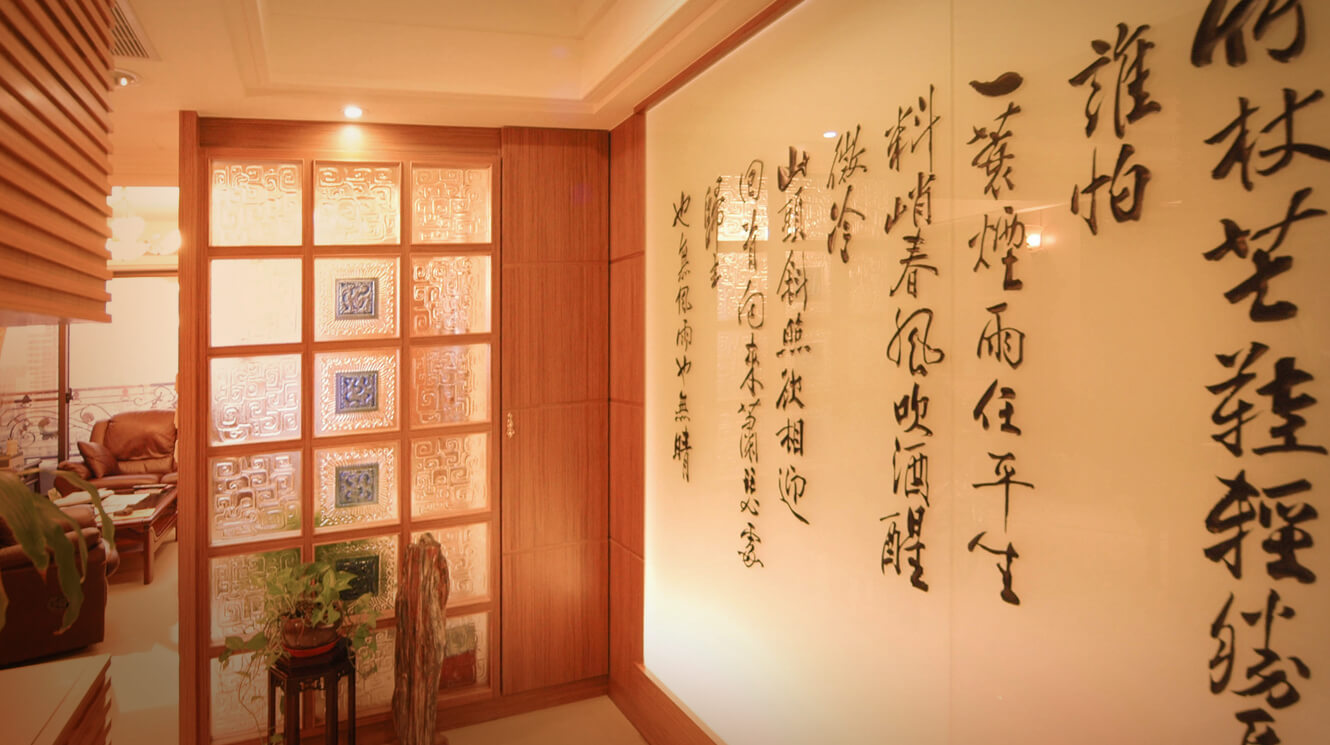 竹杖芒鞋輕勝
誰怕
一蓑煙雨任平生
料峭春風吹酒醒
微冷
山頭斜照卻相迎
回首向來蕭瑟處
歸去
也無風雨也無晴